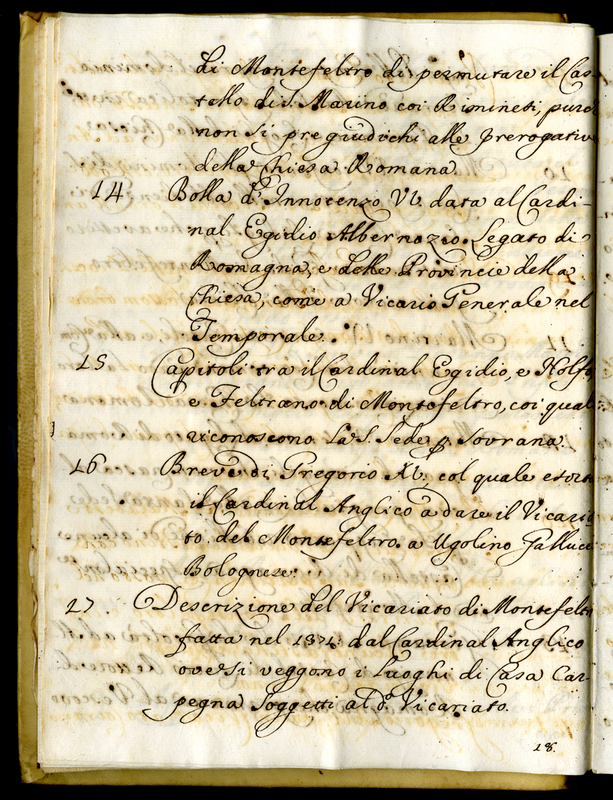 di Montefeltro di permutare il Cas
tello di S. Marino coi Riminesi, purc
non si pregiudichi alle prerogative
della Chiesa Romana.
14 Bolla d'Innocenzo VI. data al Cardi-
nal Egidio Albernozio Legato di
Romagna, e delle Provincie della
Chiesa, come a Vicario Generale nel
Temporale.
15 Capitoli tra il Cardinal Egidio, e Nolfo,
e Feltrano di Montefeltro, coi quali
riconoscono la S. Sede p. Sovrana.
16 Breve di Gregorio XI, col quale esorta
il Cardinal Anglico a dare il Vicaria
to del Montefeltro a Ugolino Gallucci
Bolognese.
17 Descrizione del Vicariato di Montefelt
fatta nel 1371. dal Cardinal Anglico
ove si veggono i Luoghi di Casa Car
pegna soggetti al d.o Vicariato.
18.